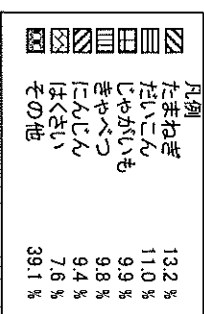 凡例
たまねぎ 13.2 %
だいこん 11.0 %
じゃがいも 9.9 %
きゃべつ 9.8 %
にんじん 9.4 %
はくさい 7.6 %
その他 39.1 %